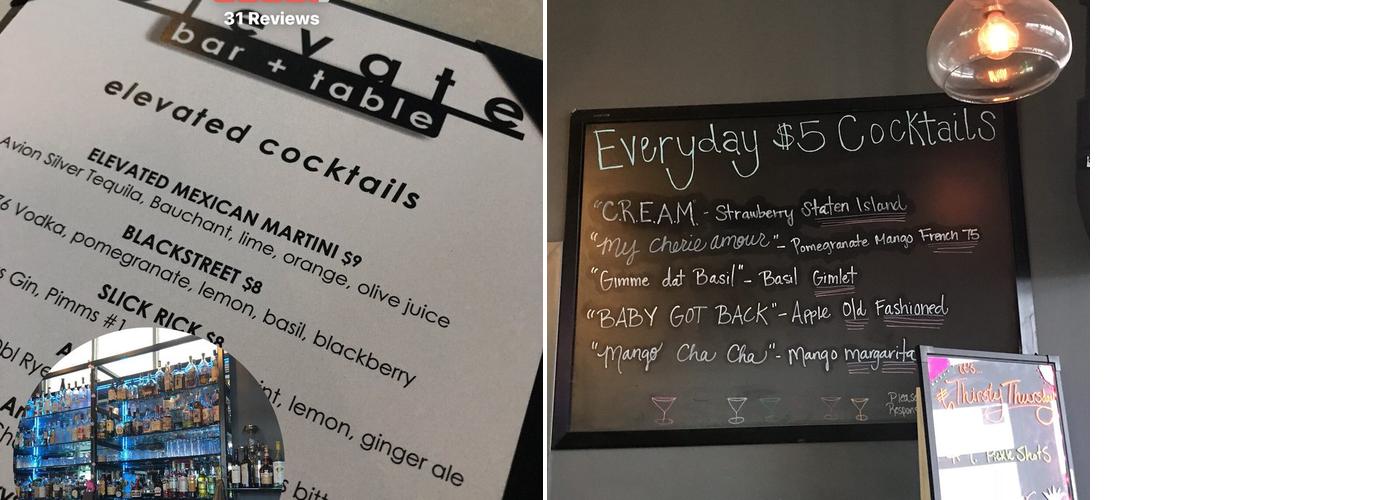 31 Reviews
bar + table
elevated cocktails
ELEVATED MEXICAN MARTINI $9
Avion Silver Tequila, Bauchant, lime, orange, olive juice
BLACKSTREET $8
Vodka, pomegranate, lemon, basil, blackberry
SLICK RICK $8
Gin, Pimms #1
lemon, ginger ale
Rye
Everyday $5 Cocktails
"C.R.E.A.M." - Strawberry Staten Island
"My Cherie amour" - Pomegranate Mango French 75
"Gimme dat Basil" - Basil Gimlet
"BABY GOT BACK" - Apple Old Fashioned
"Mango Cha Cha" - Mango margarita
Please
It's...
#Thirsty Thursday
Pickle Shots